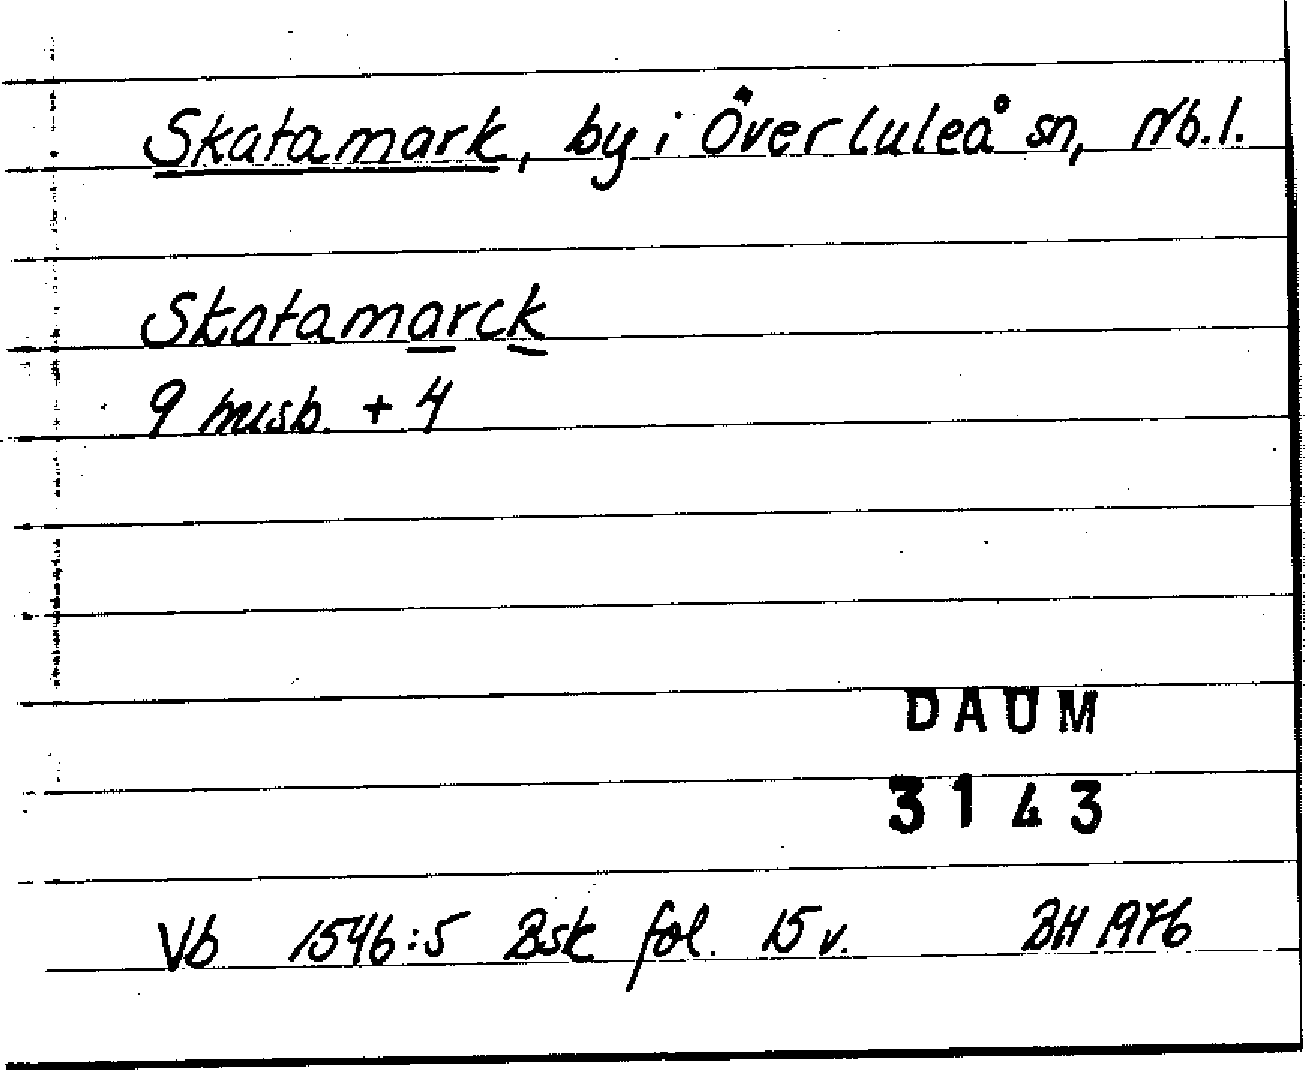 Skatamark, by i Överluleå sn, Nb.l.
Skatamarck
9 husb. + 4
DAUM
3143
Vb 1546:5 Bsk fol. 15 v. BH 1976